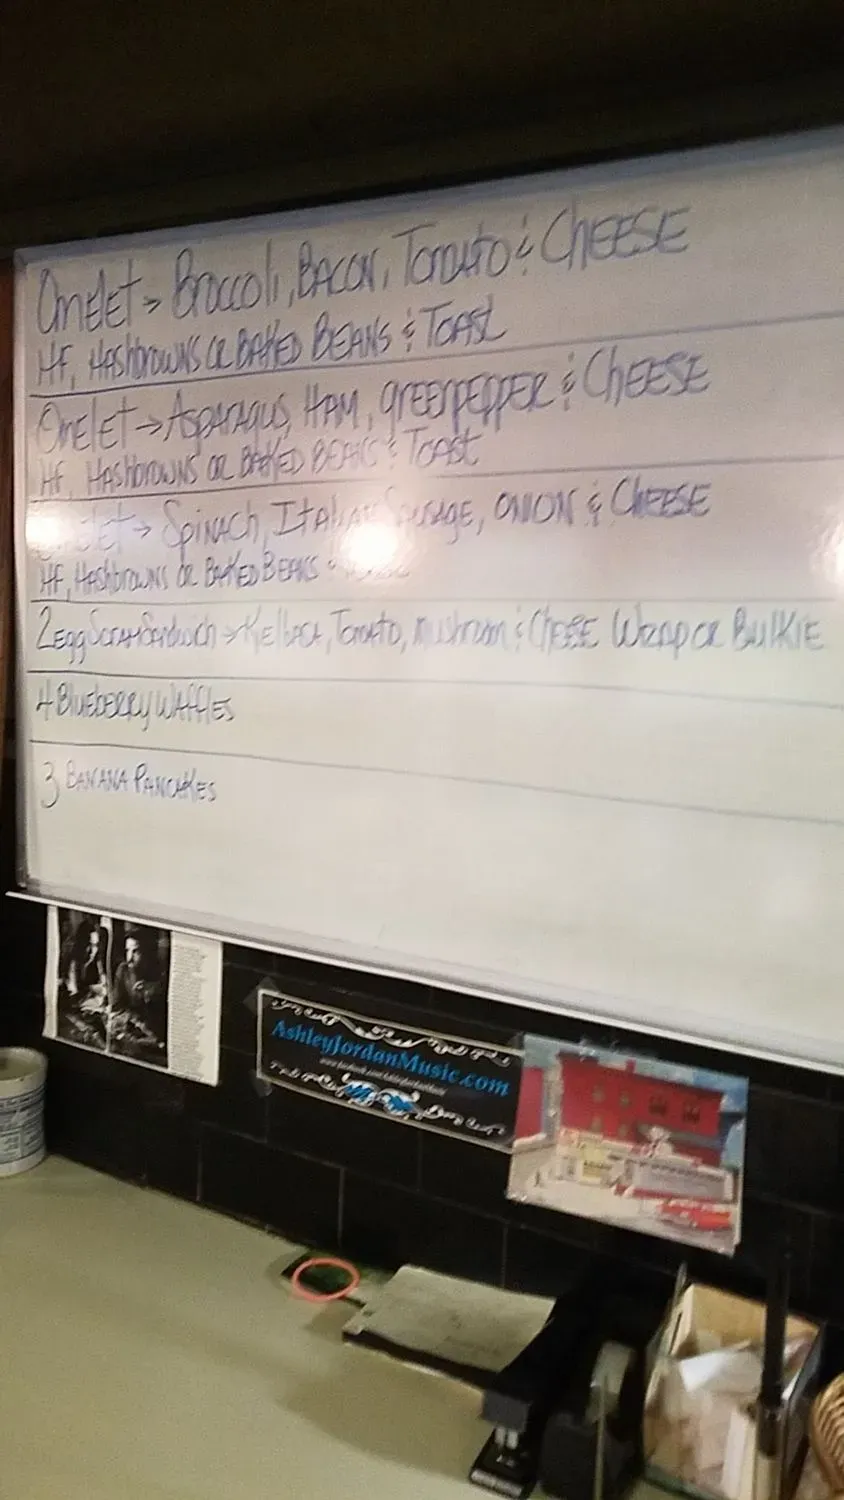 OmElet → Broccoli, BACON, Tomato & ChEESE
HF, Hashbrowns or BAKED BEANS & TOAST
OmElet → Asparagus, HAM, greenpepper & ChEESE
HF, Hashbrowns or BAKED BEANS & Toast
OmElet → Spinach, Italian Sausage, ONION & ChEESE
HF, Hashbrowns or BAKED BEANS &
2 Egg Scram Sandwich → Tomato, mushroom & ChEESE Wrap or Bulkie
4 Blueberry Waffles
3 BANANA PANCAKES
AshleyJordanMusic.com